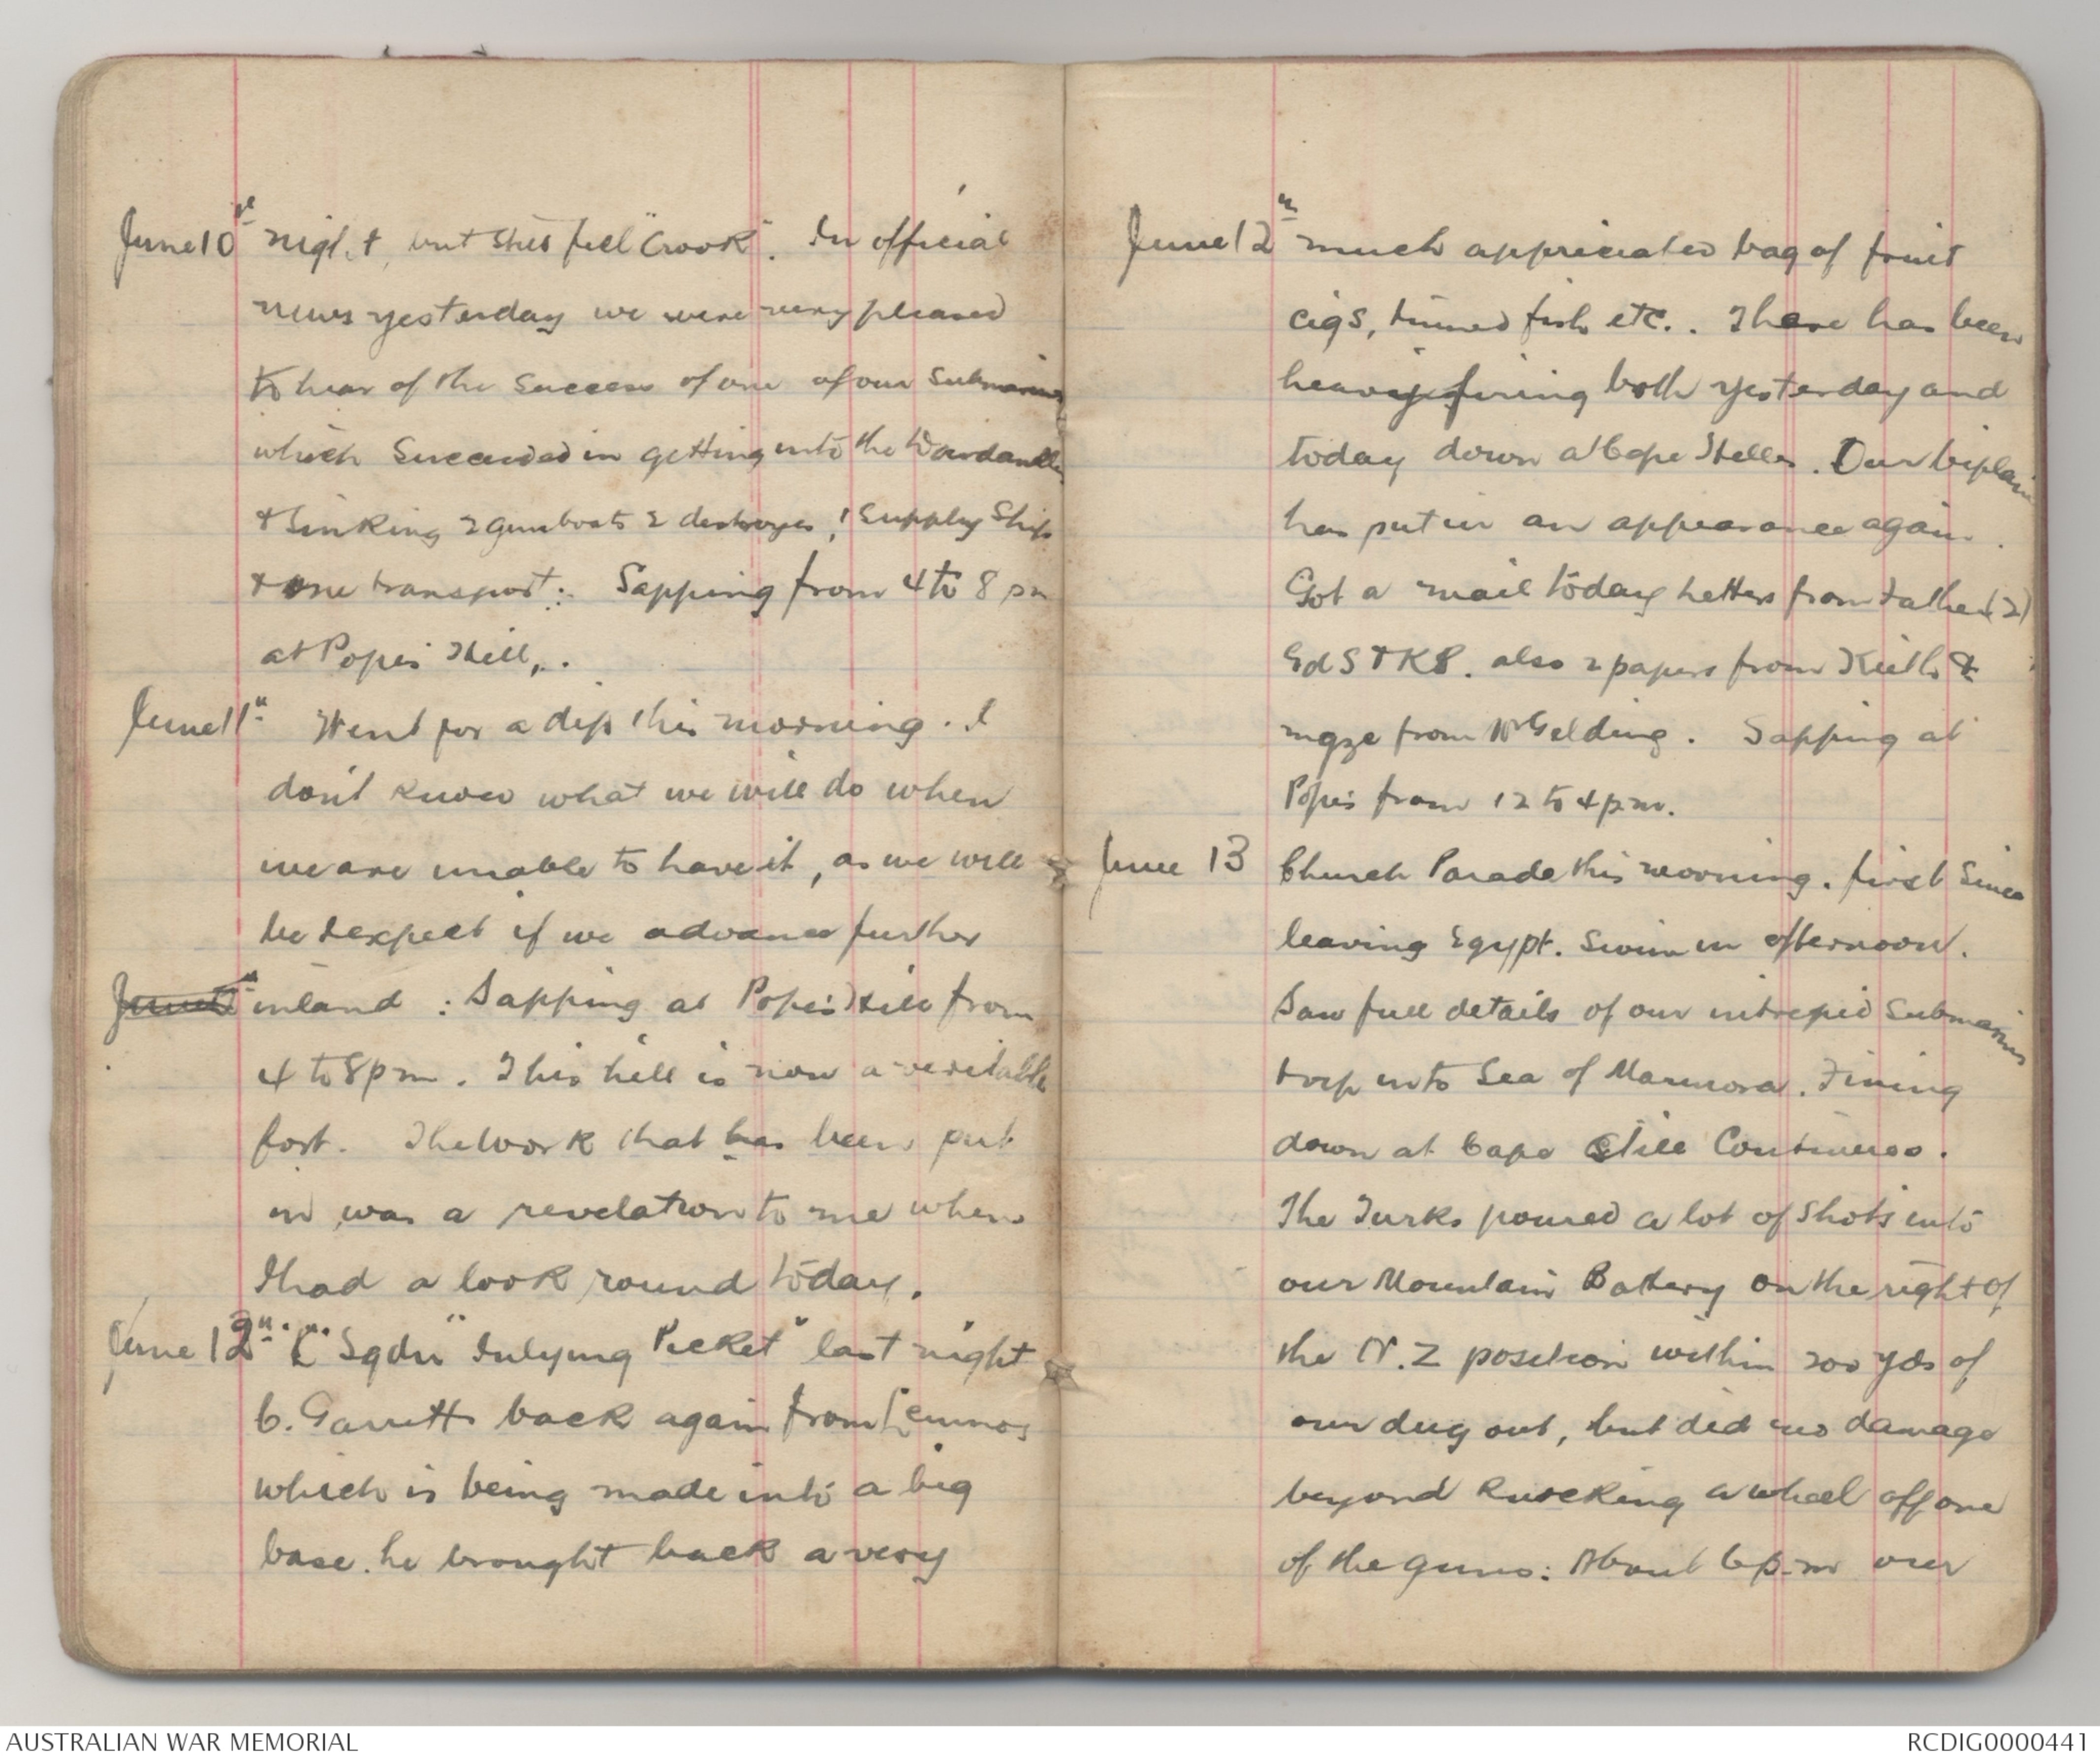 June 10th night, but still feel "Crook". In official
news yesterday we were very pleased
to hear of the success of one of our Submarines
which Succeeded in getting into the Dardanelles
& Sinking 2 gunboats 2 destroyers, 1 Supply Ship
& one transport: Sapping from 4 to 8 pm
at Popes Hill.
June 11th Went for a dip this morning. I
don't know what we will do when
we are unable to have it, as we will
be I expect if we advance further
inland : Sapping at Pope's Hill from
4 to 8 pm. This hill is now a veritable
fort. The work that has been put
in was a revelation to me when
I had a look round today.
June 12th "C" Sqdn "Inlying Picket" last night
C. Garrett back again from Lemnos
which is being made into a big
base. he brought back a very
June 12th much appreciated bag of fruit
cigs, tinned fish etc.. There has been
heavy firing both yesterday and
today down at Cape Helles. Our biplane
has put in an appearance again.
Got a mail today letters from Father (2)
Ed S & K8. also 2 papers from Keith &
mgze from Gelding. Sapping at
Popes from 12 to 4 p.m.
June 13 Church Parade this morning. first Since
leaving Egypt. Swim in afternoon.
Saw full details of our intrepid Submarines
trip into Sea of Marmora. Firing
down at Cape Still Continues.
The Turks poured a lot of Shots into
our Mountain Battery on the right of
the N.Z position within 200 yds of
our dug out, but did no damage
beyond knocking a wheel off one
of the guns: About 6 p.m our
AUSTRALIAN WAR MEMORIAL
RCDIG0000441